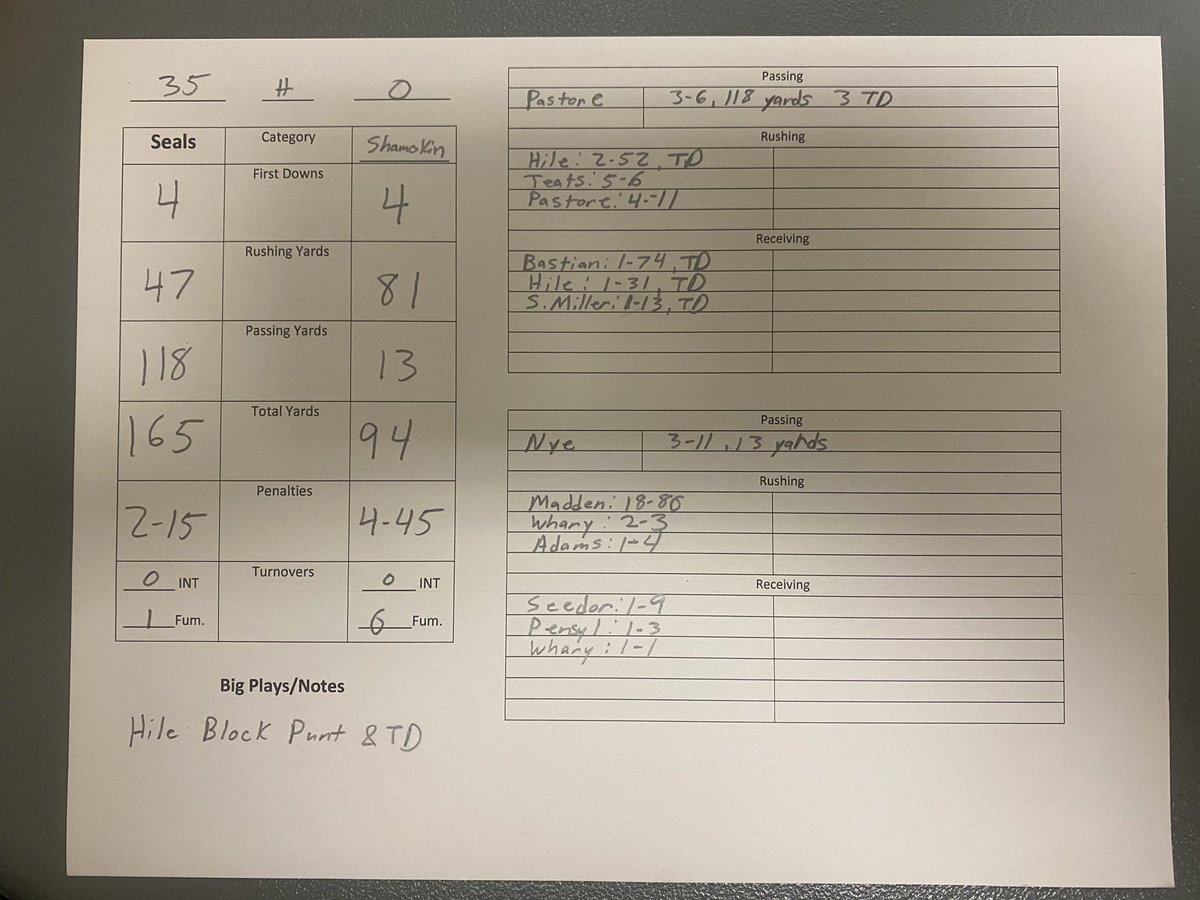 35 H 0
Seals Category Shamokin
4 First Downs 4
47 Rushing Yards 81
118 Passing Yards 13
165 Total Yards 94
2-15 Penalties 4-45
0 INT Turnovers 0 INT
1 Fum. 6 Fum.
Big Plays/Notes
Hile Block Punt & TD
Passing
Pastore 3-6, 118 yards 3 TD
Rushing
Hile: 2-52, TD
Teats: 5-6
Pastore: 4--11
Receiving
Bastian: 1-74, TD
Hile: 1-31, TD
S. Miller: 1-13, TD
Passing
Nye 3-11, 13 yards
Rushing
Madden: 18-86
Whary: 2-3
Adams: 1-4
Receiving
Seedor: 1-9
Pensyl: 1-3
Whary: 1-1